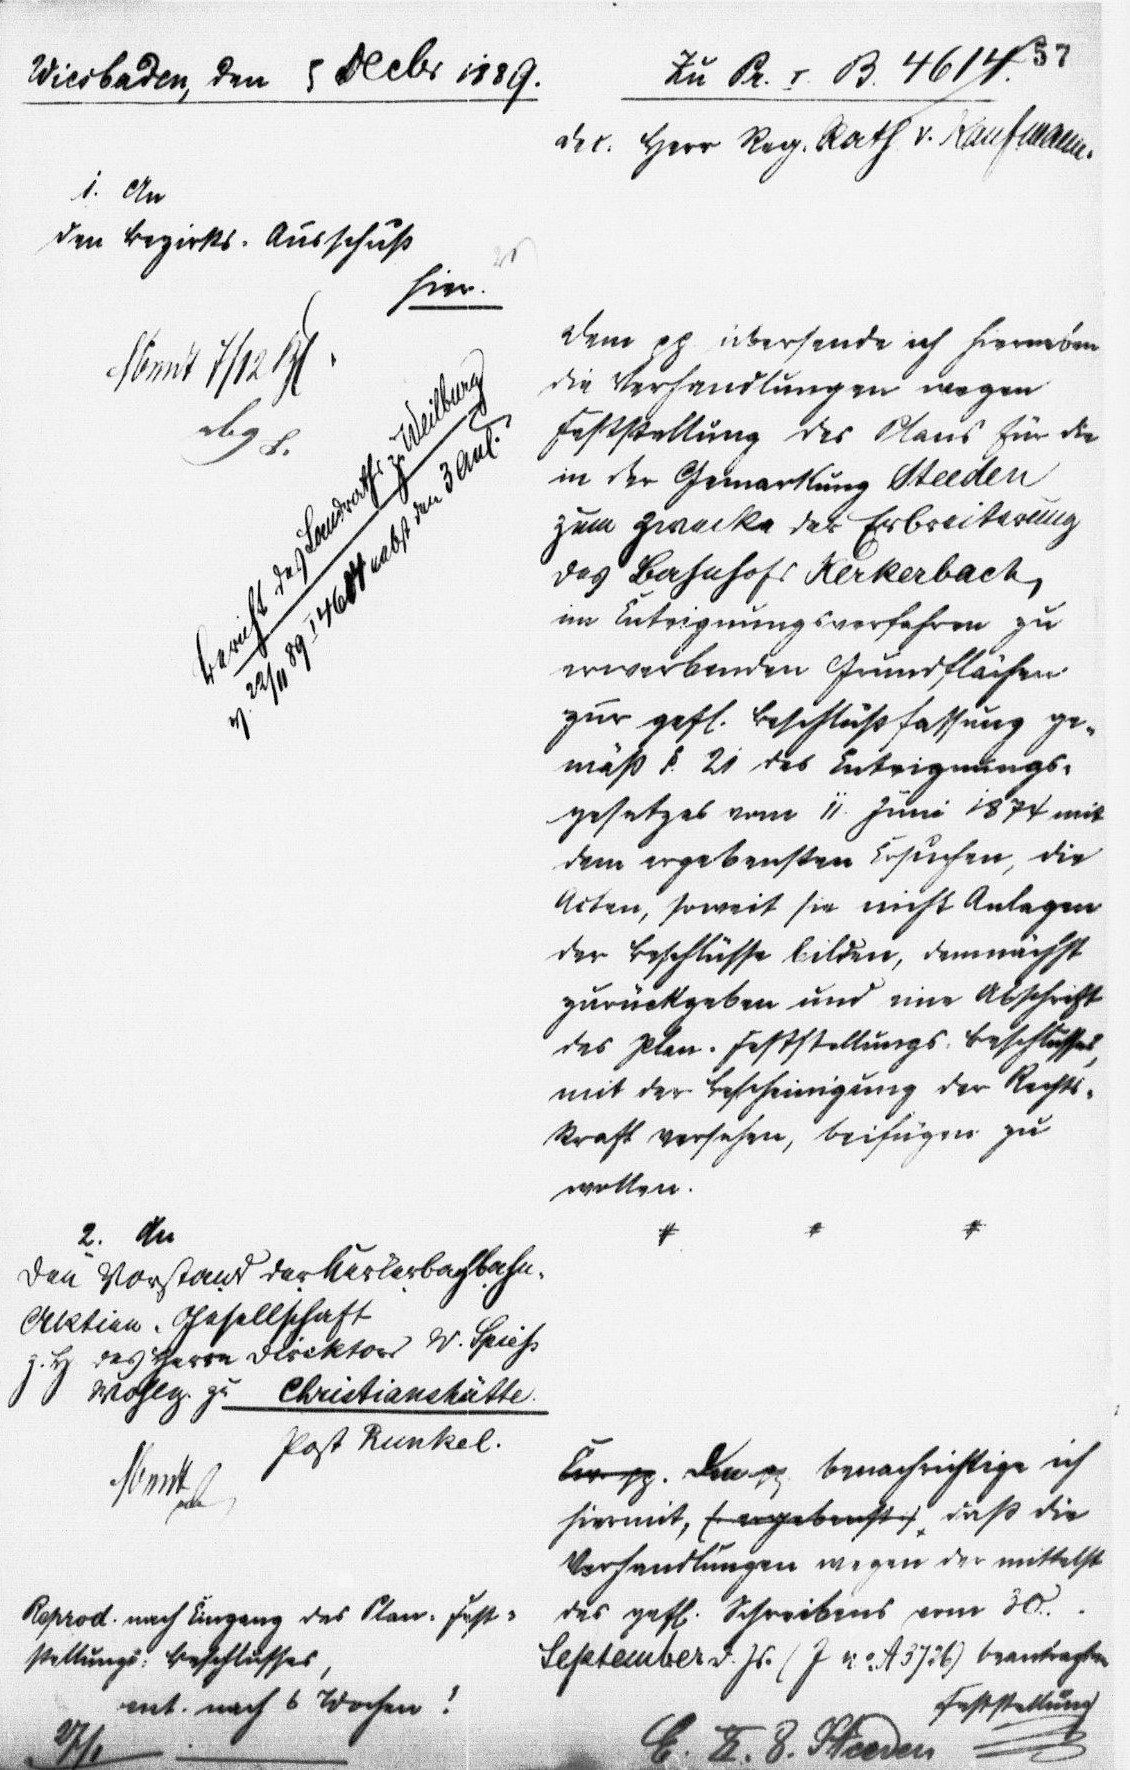 57
Wiesbaden, den 5 Decbr 1889.
Zu Pr. I. B. 4614.
dec. Herr Reg. Rath v. Kaufmann.
1. An
den Bezirks-Ausschuß
hier.
Mundt 7/12
abg
Bericht des Landraths zu Weilburg
v. 22/11 89 I 4684 nebst den 3 Anl.
Dem pp übersende ich hierneben
die Verhandlungen wegen
Feststellung des Plans für die
in der Gemarkung Steeden
zum Zwecke der Erbreiterung
des Bahnhofs Kerkerbach,
im Enteignungsverfahren zu
erwerbenden Grundflächen
zur gefl. Beschlußfassung ge-
mäß §. 21 des Enteignungs-
gesetzes vom 11. Juni 1874 mit
dem ergebensten Ersuchen, die
Acten, soweit sie nicht Anlagen
der Beschlüsse bilden, demnächst
zurückgeben und eine Abschrift
des Plan-Feststellungs-Beschlusses,
mit der Bescheinigung der Rechts-
kraft versehen, beifügen zu
wollen.
2. An
den Vorstand der Kerkerbachbahn-
Aktien-Gesellschaft
z. H des Herrn Direktors W. Spieß
Wohlg. zu Christianshütte.
Post Runkel.
Mundt
Ew. pp. Den pp. benachrichtige ich
hiermit, (ergebenst), daß die
Verhandlungen wegen der mittelst
des gefl. Schreibens vom 30.
September d. Js. (J no. A 3726) beantragten
Feststellung
Reprod. nach Eingang des Plan-Fest-
stellungs-Beschlusses,
ent. nach 6 Wochen!
E. II. 8. Steeden